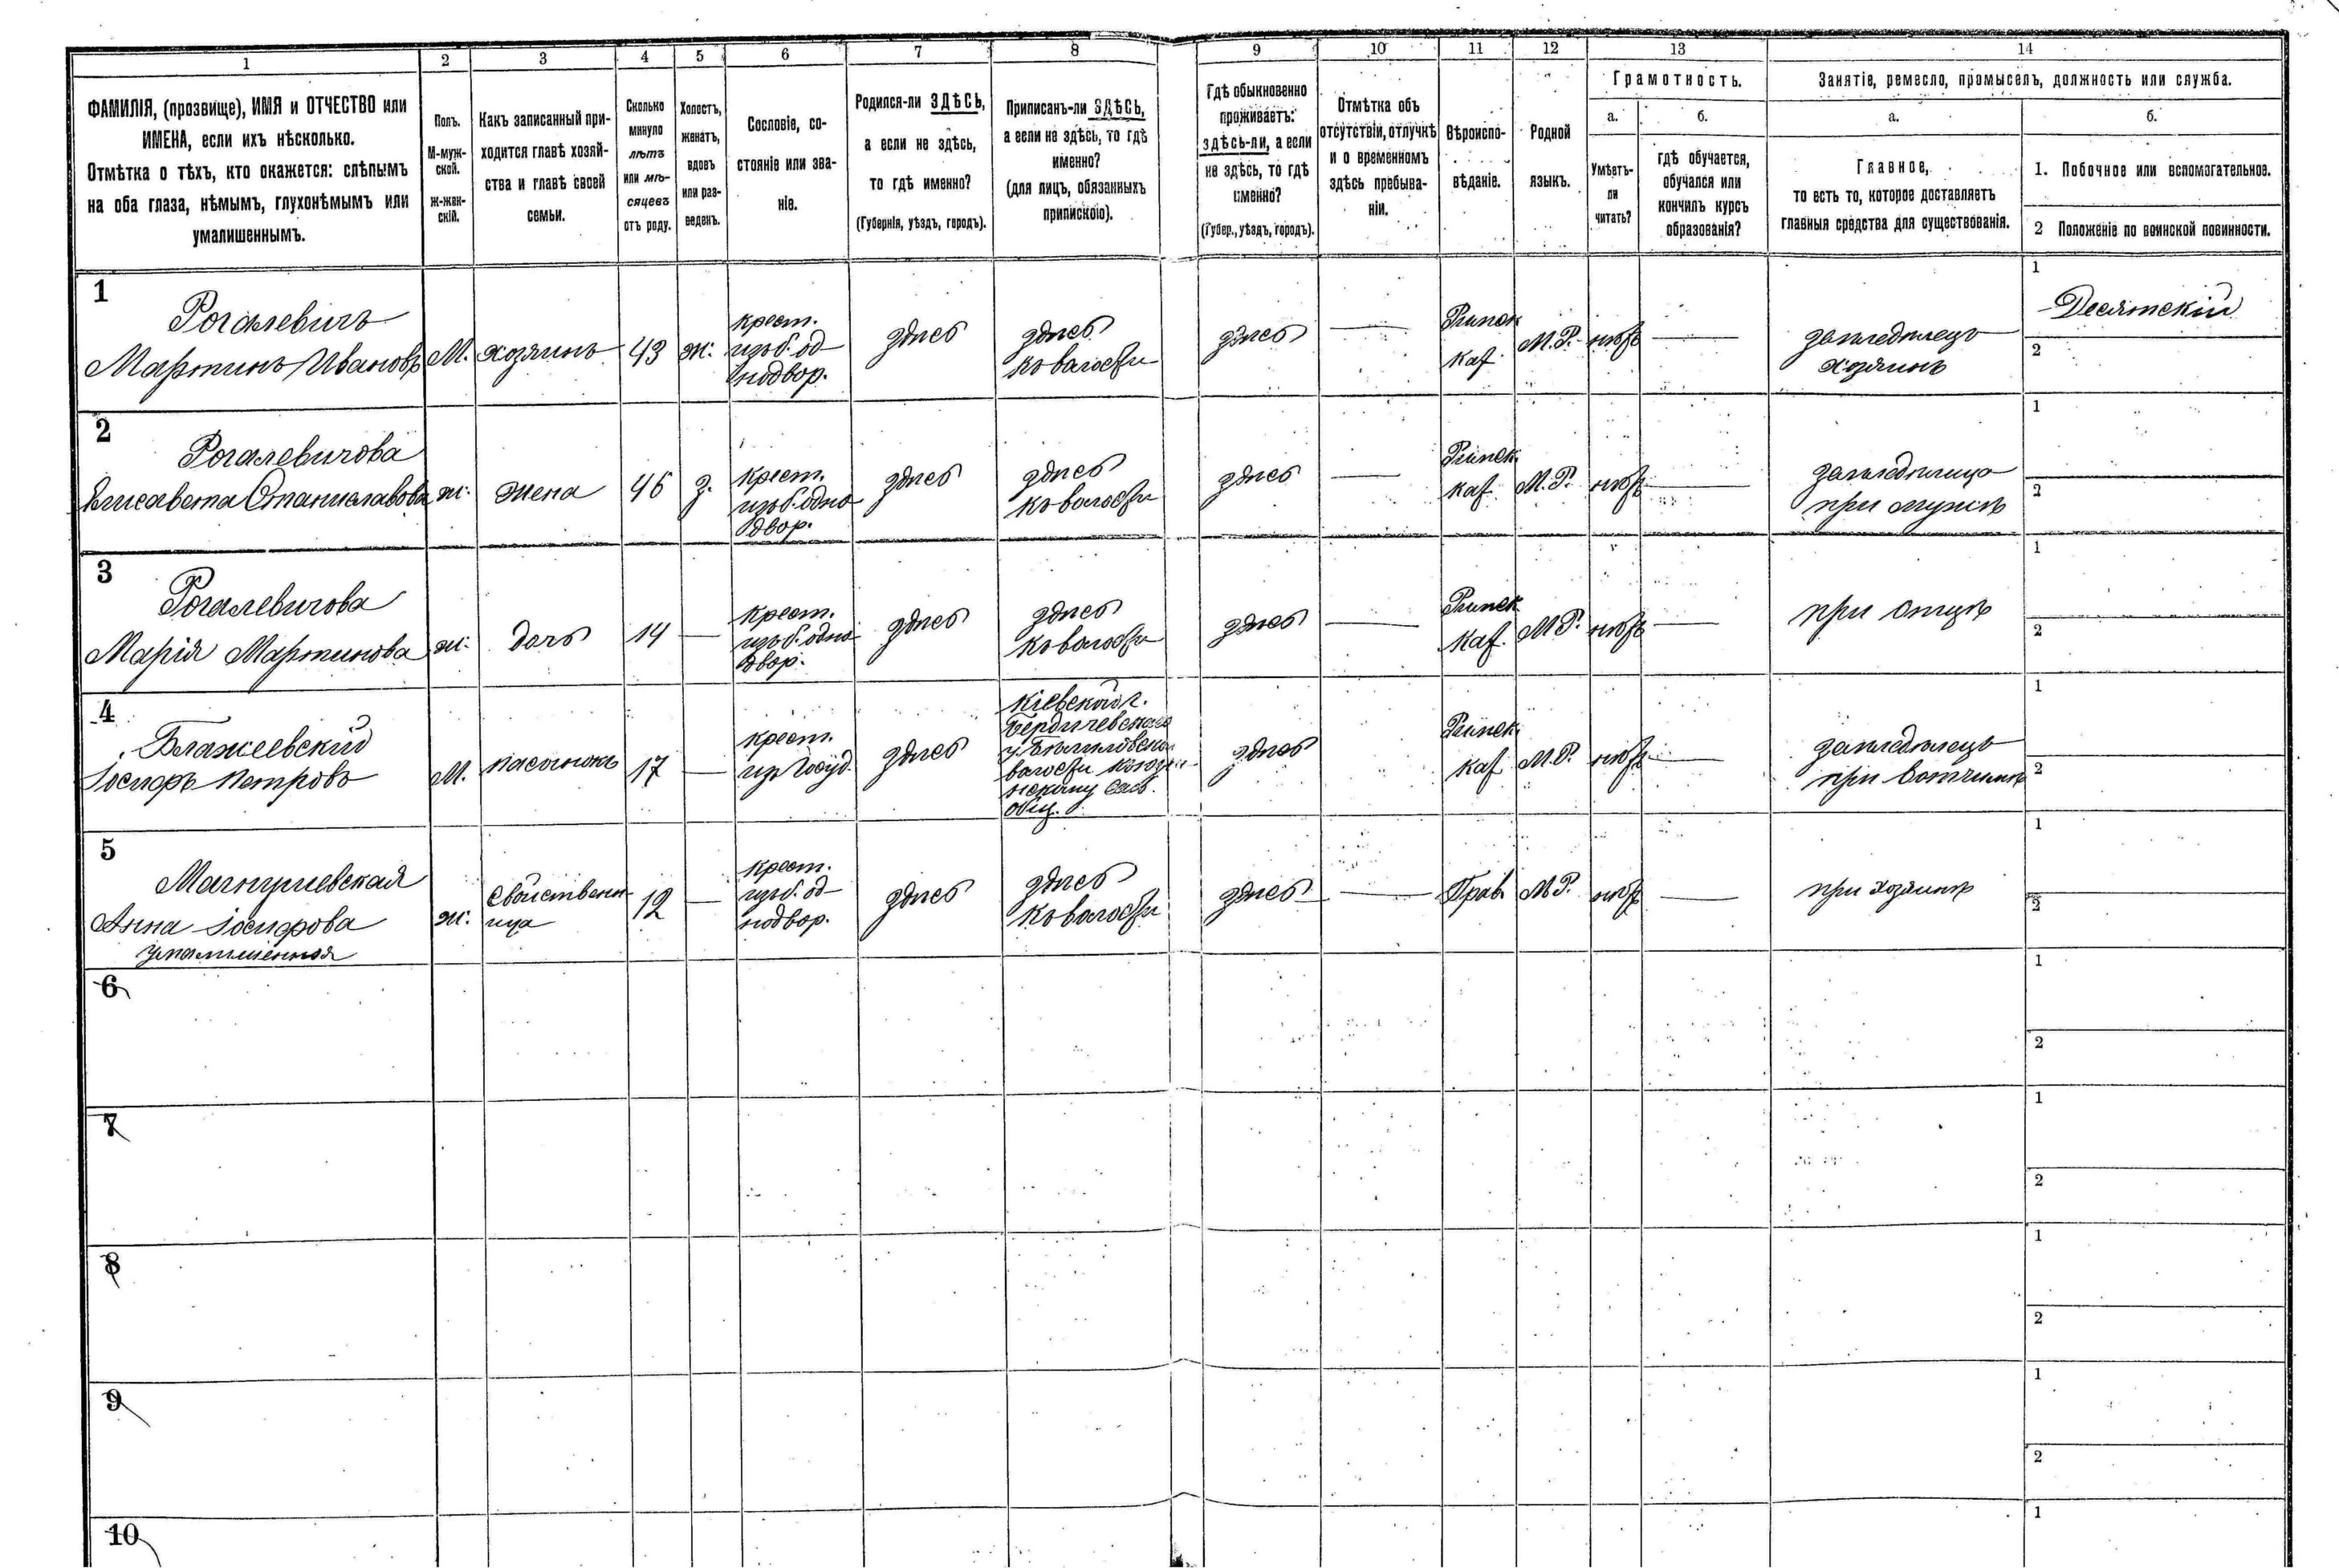 1 2 3 4 5 6 7 8 9 10 11 12 13 14
ФАМИЛІЯ, (прозвище), ИМЯ и ОТЧЕСТВО или
ИМЕНА, если ихъ нѣсколько.
Отмѣтка о тѣхъ, кто окажется: слѣпымъ
на оба глаза, нѣмымъ, глухонѣмымъ или
умалишеннымъ.
Полъ.
М-муж-
ской.
Ж-жен-
скій.
Какъ записанный при-
ходится главѣ хозяй-
ства и главѣ своей
семьи.
Сколько
минуло
лѣтъ
или мѣ-
сяцевъ
отъ роду.
Холостъ,
женатъ,
вдовъ
или раз-
веденъ.
Сословіе, со-
стояніе или зва-
ніе.
Родился-ли ЗДѢСЬ,
а если не здѣсь,
то гдѣ именно?
(Губернія, уѣздъ, городъ).
Приписанъ-ли ЗДѢСЬ,
а если не здѣсь, то гдѣ
именно?
(для лицъ, обязанныхъ
припискою).
Гдѣ обыкновенно
проживаетъ:
здѣсь-ли, а если
не здѣсь, то гдѣ
именно?
(Губер., уѣздъ, городъ).
Отмѣтка объ
отсутствіи, отлучкѣ
и о временномъ
здѣсь пребыва-
ніи.
Вѣроиспо-
вѣданіе.
Родной
языкъ.
Грамотность.
а.
Умѣетъ-
ли
читать?
б.
гдѣ обучается,
обучался или
кончилъ курсъ
образованія?
Занятіе, ремесло, промыселъ, должность или служба.
а.
Главное,
то есть то, которое доставляетъ
главныя средства для существованія.
б.
1. Побочное или вспомогательное.
2 Положеніе по воинской повинности.
1
Рогалевичъ
Мартинъ Ивановъ
М.
хозяинъ
43
ж.
крест.
изъ б. од-
нодвор.
здѣсь
здѣсь
къ волости
здѣсь
—
Римск
каф.
М.Р.
нѣтъ
—
земледѣлецъ
хозяинъ
1
Десятскій
2
2
Рогалевичова
Елисавета Станиславова
ж.
жена
46
з.
крест.
изъ б. одно
двор.
здѣсь
здѣсь
къ волости
здѣсь
—
Римск.
каф.
М.Р.
нѣтъ
—
земледѣлица
при мужѣ
1
2
3
Рогалевичова
Марія Мартинова
ж.
дочь
14
—
крест.
изъ б. одно
двор.
здѣсь
здѣсь
къ волости
здѣсь
—
Римск
каф.
М.Р.
нѣтъ
—
при отцѣ
1
2
4
Блажеевскій
Іосифъ Петровъ
М.
пасынокъ
17
—
крест.
изъ Госуд.
здѣсь
Кіевской г.
Бердичевскаго
у.
волости
общ.
здѣсь
Римск.
каф.
М.Р.
нѣтъ
—
земледѣлецъ
при вотчимѣ
1
2
5
Анна Іосифова
умалишенная
ж.
свойственн-
ица
12
—
крест.
изъ б. од-
нодвор.
здѣсь
здѣсь
къ волости
здѣсь
—
Прав.
М.Р.
нѣтъ
—
при хозяинѣ
1
2
6
1
2
7
1
2
8
1
2
9
1
2
10
1